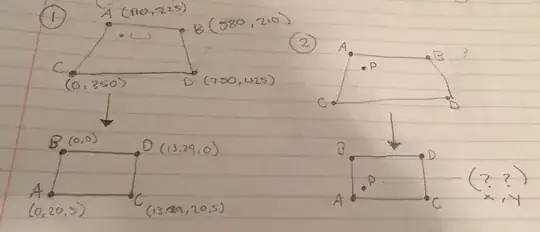 ①
A (110,225)
B (580,210)
C
(0,350)
D (750,425)
B (0,0)
D (13.29,0)
A
(0,20.5)
C
(13.29,20.5)
②
A
B
P
C
D
B
D
P
A
C
(? , ?)
x, y